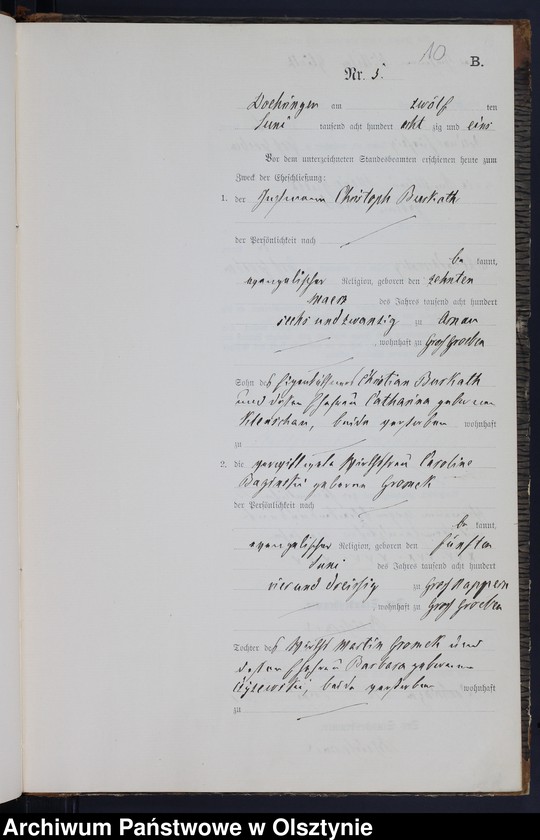 10
B.
Nr. 5.
Doehringen am zwölf ten
Juni tausend acht hundert acht zig und eins
Vor dem unterzeichneten Standesbeamten erschienen heute zum
Zweck der Eheschließung:
1. der Christoph Burkath
der Persönlichkeit nach
be kannt,
evangelischer Religion, geboren den zehnten
Maerz des Jahres tausend acht hundert
sechs und zwanzig zu Arnau
, wohnhaft zu Groß Groeben
Sohn des Christian Burkath
und dessen Ehefrau Catharina geborenen
beide verstorben wohnhaft
zu
2. die Wirthsfrau Caroline
geborene Gromek
der Persönlichkeit nach
be kannt,
evangelischer Religion, geboren den fünften
Juni des Jahres tausend acht hundert
vier und dreissig zu Groß Nappern
, wohnhaft zu Groß Groeben
Tochter des Wirths Martin Gromek und
dessen Ehefrau Barbara geborenen
beide verstorben wohnhaft
zu
Archiwum Państwowe w Olsztynie